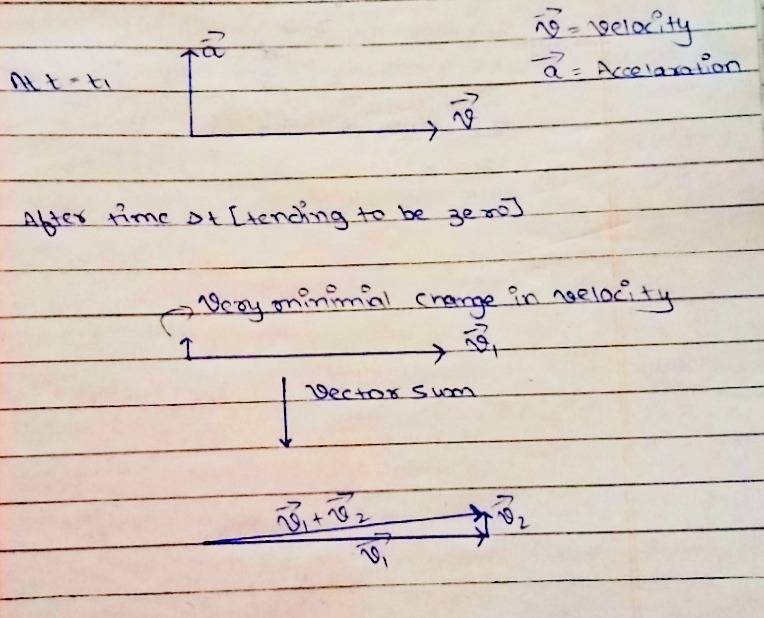 v⃗ = velocity
a⃗
At t = t₁
a⃗ = Accelaration
v⃗
After time Δt [tending to be zero]
Very minimal change in velocity
v⃗₁
Vector sum
v⃗₁ + v⃗₂
v⃗₂
v⃗₁